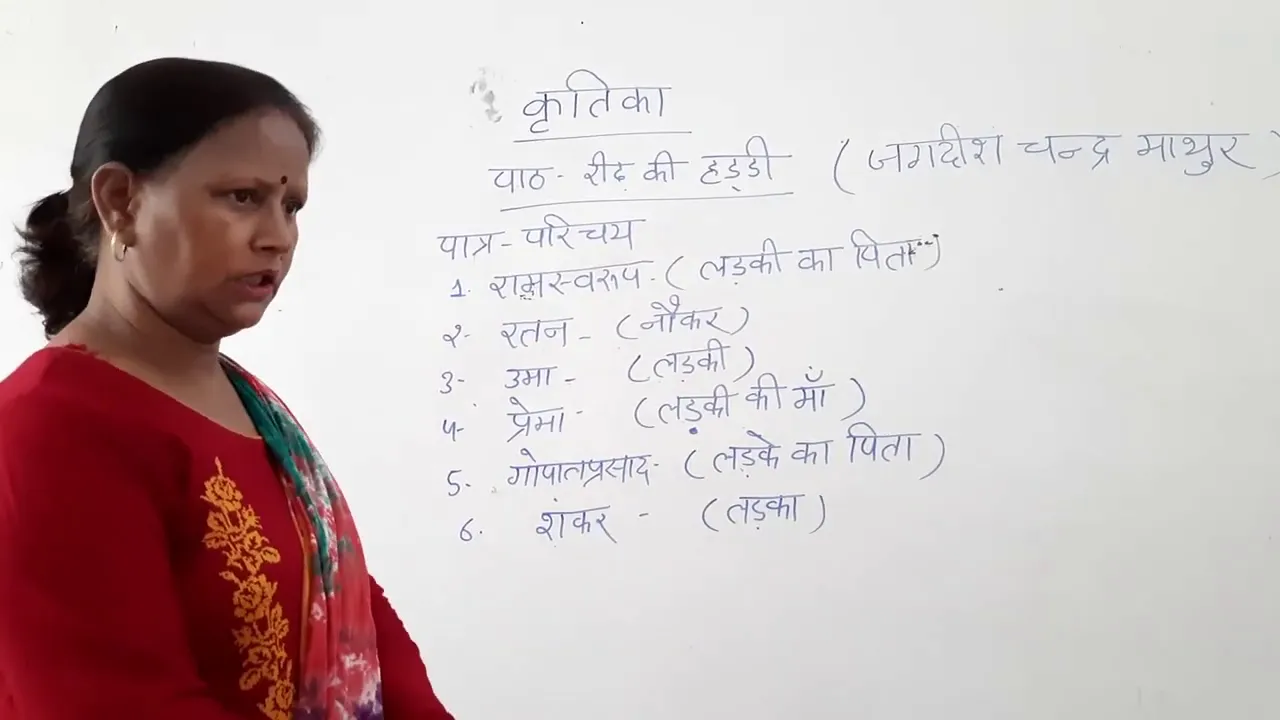 कृतिका
पाठ - रीढ़ की हड्डी (जगदीश चन्द्र माथुर)
पात्र - परिचय
1. रामस्वरूप - (लड़की का पिता)
२- रतन - (नौकर)
३- उमा - (लड़की)
५- प्रेमा - (लड़की की माँ)
5. गोपालप्रसाद - (लड़के का पिता)
6. शंकर - (लड़का)